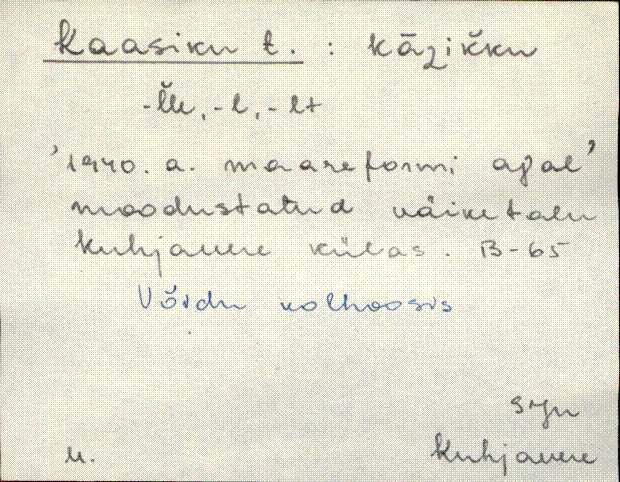 Kaasiku t. : kāzikku
-l̆le, -l, -lt
'1940. a. maareformi ajal'
moodustatud väiketalu
Kuhjavere külas. B-65
Võidu kolhoosis
SJn
M. Kuhjavere